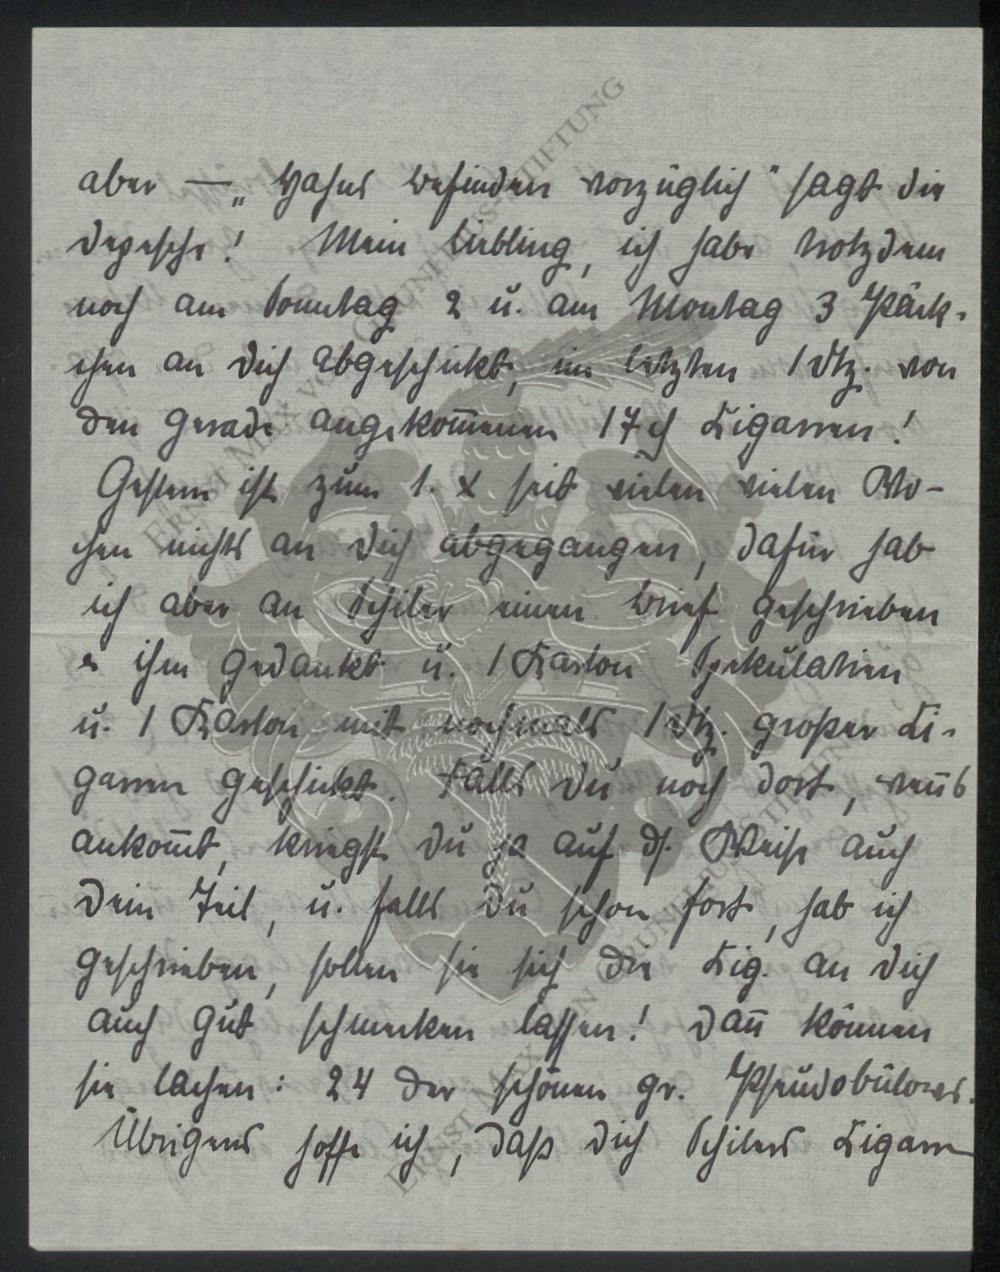 aber — „Hahns befinden vorzüglich" sagt die
Depesche! Mein Liebling, ich habe trotzdem
noch am Sonntag 2 u. am Montag 3 Päck-
chen an Dich abgeschickt, im letzten 1 Dtz. von
den gerade angekom̅enen 17 ₰ Zigarren!
Gestern ist zum 1. X seit vielen vielen Wo-
chen nichts an Dich abgegangen, dafür hab
ich aber an Schiler einen Brief geschrieben
& ihm gedankt u. 1 Karton Spekulatien
u. 1 Karton mit nochmals 1 Dtz. großer Zi-
garren geschickt. Falls Du noch dort, wen̅s
ankom̅t, kriegst Du ja auf ds. Weise auch
Dein Teil, u. falls Du schon fort, hab ich
geschrieben, sollen sie sich die Zig. an Dich
auch gut schmecken lassen! Dan̅ können
sie lachen: 24 der schönen gr. Pseudobülows.
Übrigens hoffe ich, daß Dich Schilers Zigarren
ERNST MAX VON GRUNELIUS-STIFTUNG
ERNST MAX VON GRUNELIUS-STIFTUNG